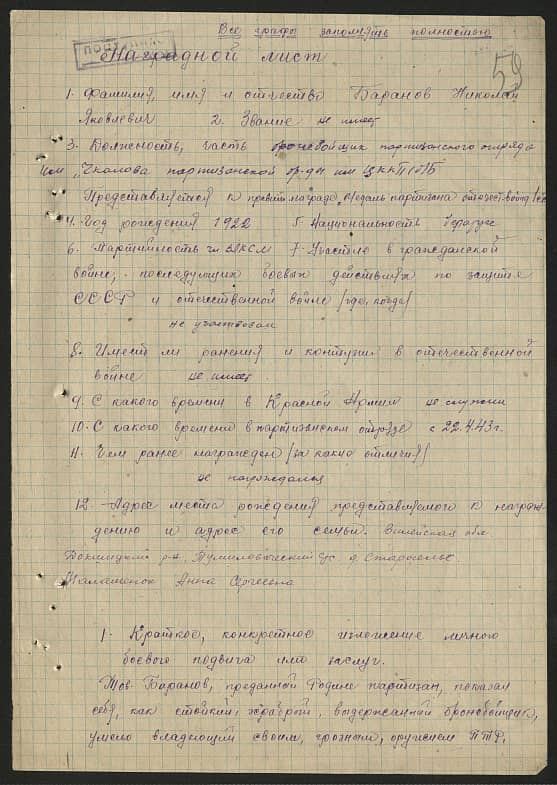 Все графы заполнять полностью
59
Наградной лист
1. Фамилия, имя и отчество Баранов Николай
Яковлевич 2. Звание не имеет
3. Должность, часть бронебойщик партизанского отряда
им. Чкалова партизанской бр-ды им ЦК КП(б)Б
Представляется к правит. награде, медаль партизана отечест. войны
4. Год рождения 1922 5. Национальность беларус
6. Партийность чл. ВЛКСМ 7. Участие в гражданской
войне, последующих боевых действиях по защите
СССР и отечественной войне /где, когда/
не участвовал
8. Имеет ли ранения и контузии в отечественной
войне не имеет
9. С какого времени в Красной Армии не служил
10. С какого времени в партизанском отряде с 22.4.43г.
11. Чем ранее награжден /за какие отличия/
не награждался
12. Адрес места рождения представляемого к награж-
дению и адрес его семьи. Вилейская обл.
Докшицкий р-н, с/с д. Староселье
Малашенок Анна Сергеевна
1. Краткое, конкретное изложение личного
боевого подвига или заслуг.
Тов. Баранов, преданной Родине партизан, показал
себя, как стойкий, храбрый, выдержанный бронебойщик,
умело владеющий своим, грозным, оружием ПТР.